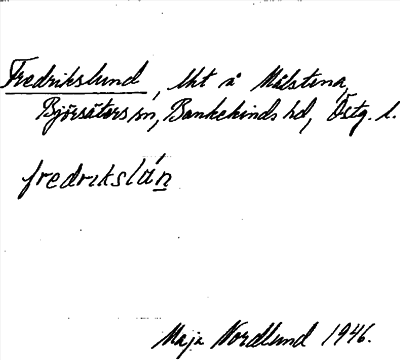 Fredrikslund, lht å Målstena,
Björsäters sn, Bankekinds hd, Östg. l.
fredrikslún
Maja Nordlund 1946.